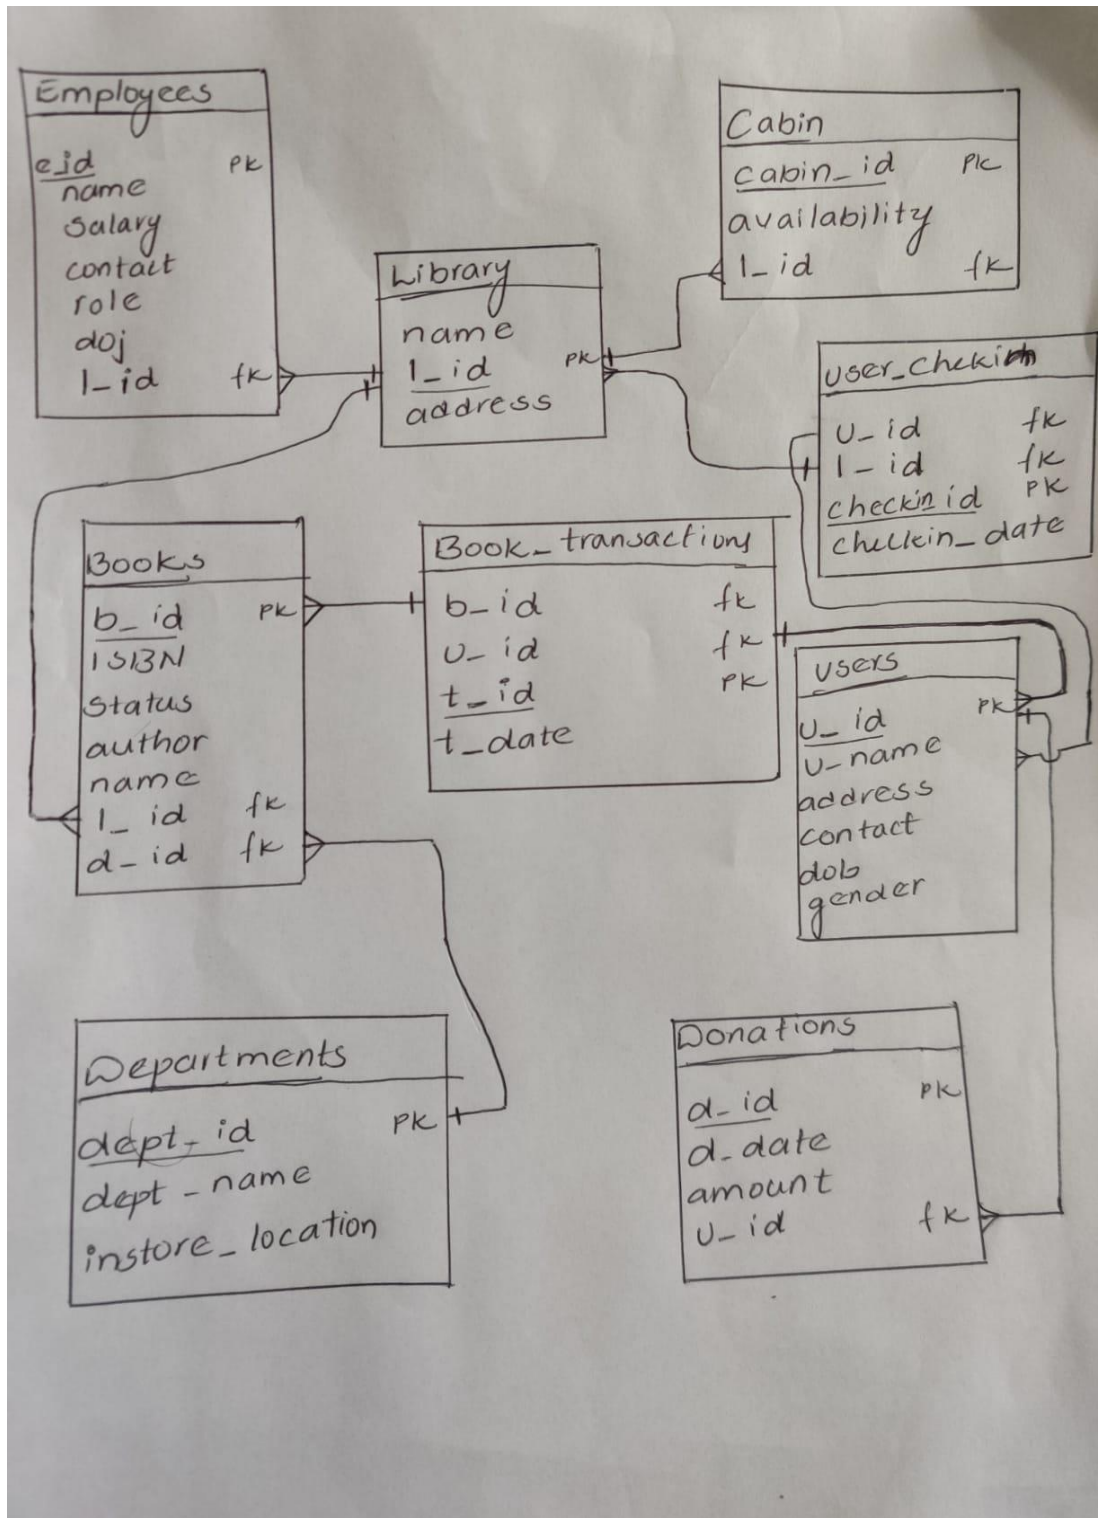 Employees
e_id pk
name
salary
contact
role
doj
l_id fk
Cabin
cabin_id pk
availability
l_id fk
Library
name
l_id pk
address
user_chekin
u_id fk
l_id fk
checkin id pk
checkin_date
Books
b_id pk
ISBN
status
author
name
l_id fk
d_id fk
Book_transactions
b_id fk
u_id fk
t_id pk
t_date
users
u_id pk
u_name
address
contact
dob
gender
Departments
dept_id pk
dept_name
instore_location
Donations
d_id pk
d_date
amount
u_id fk